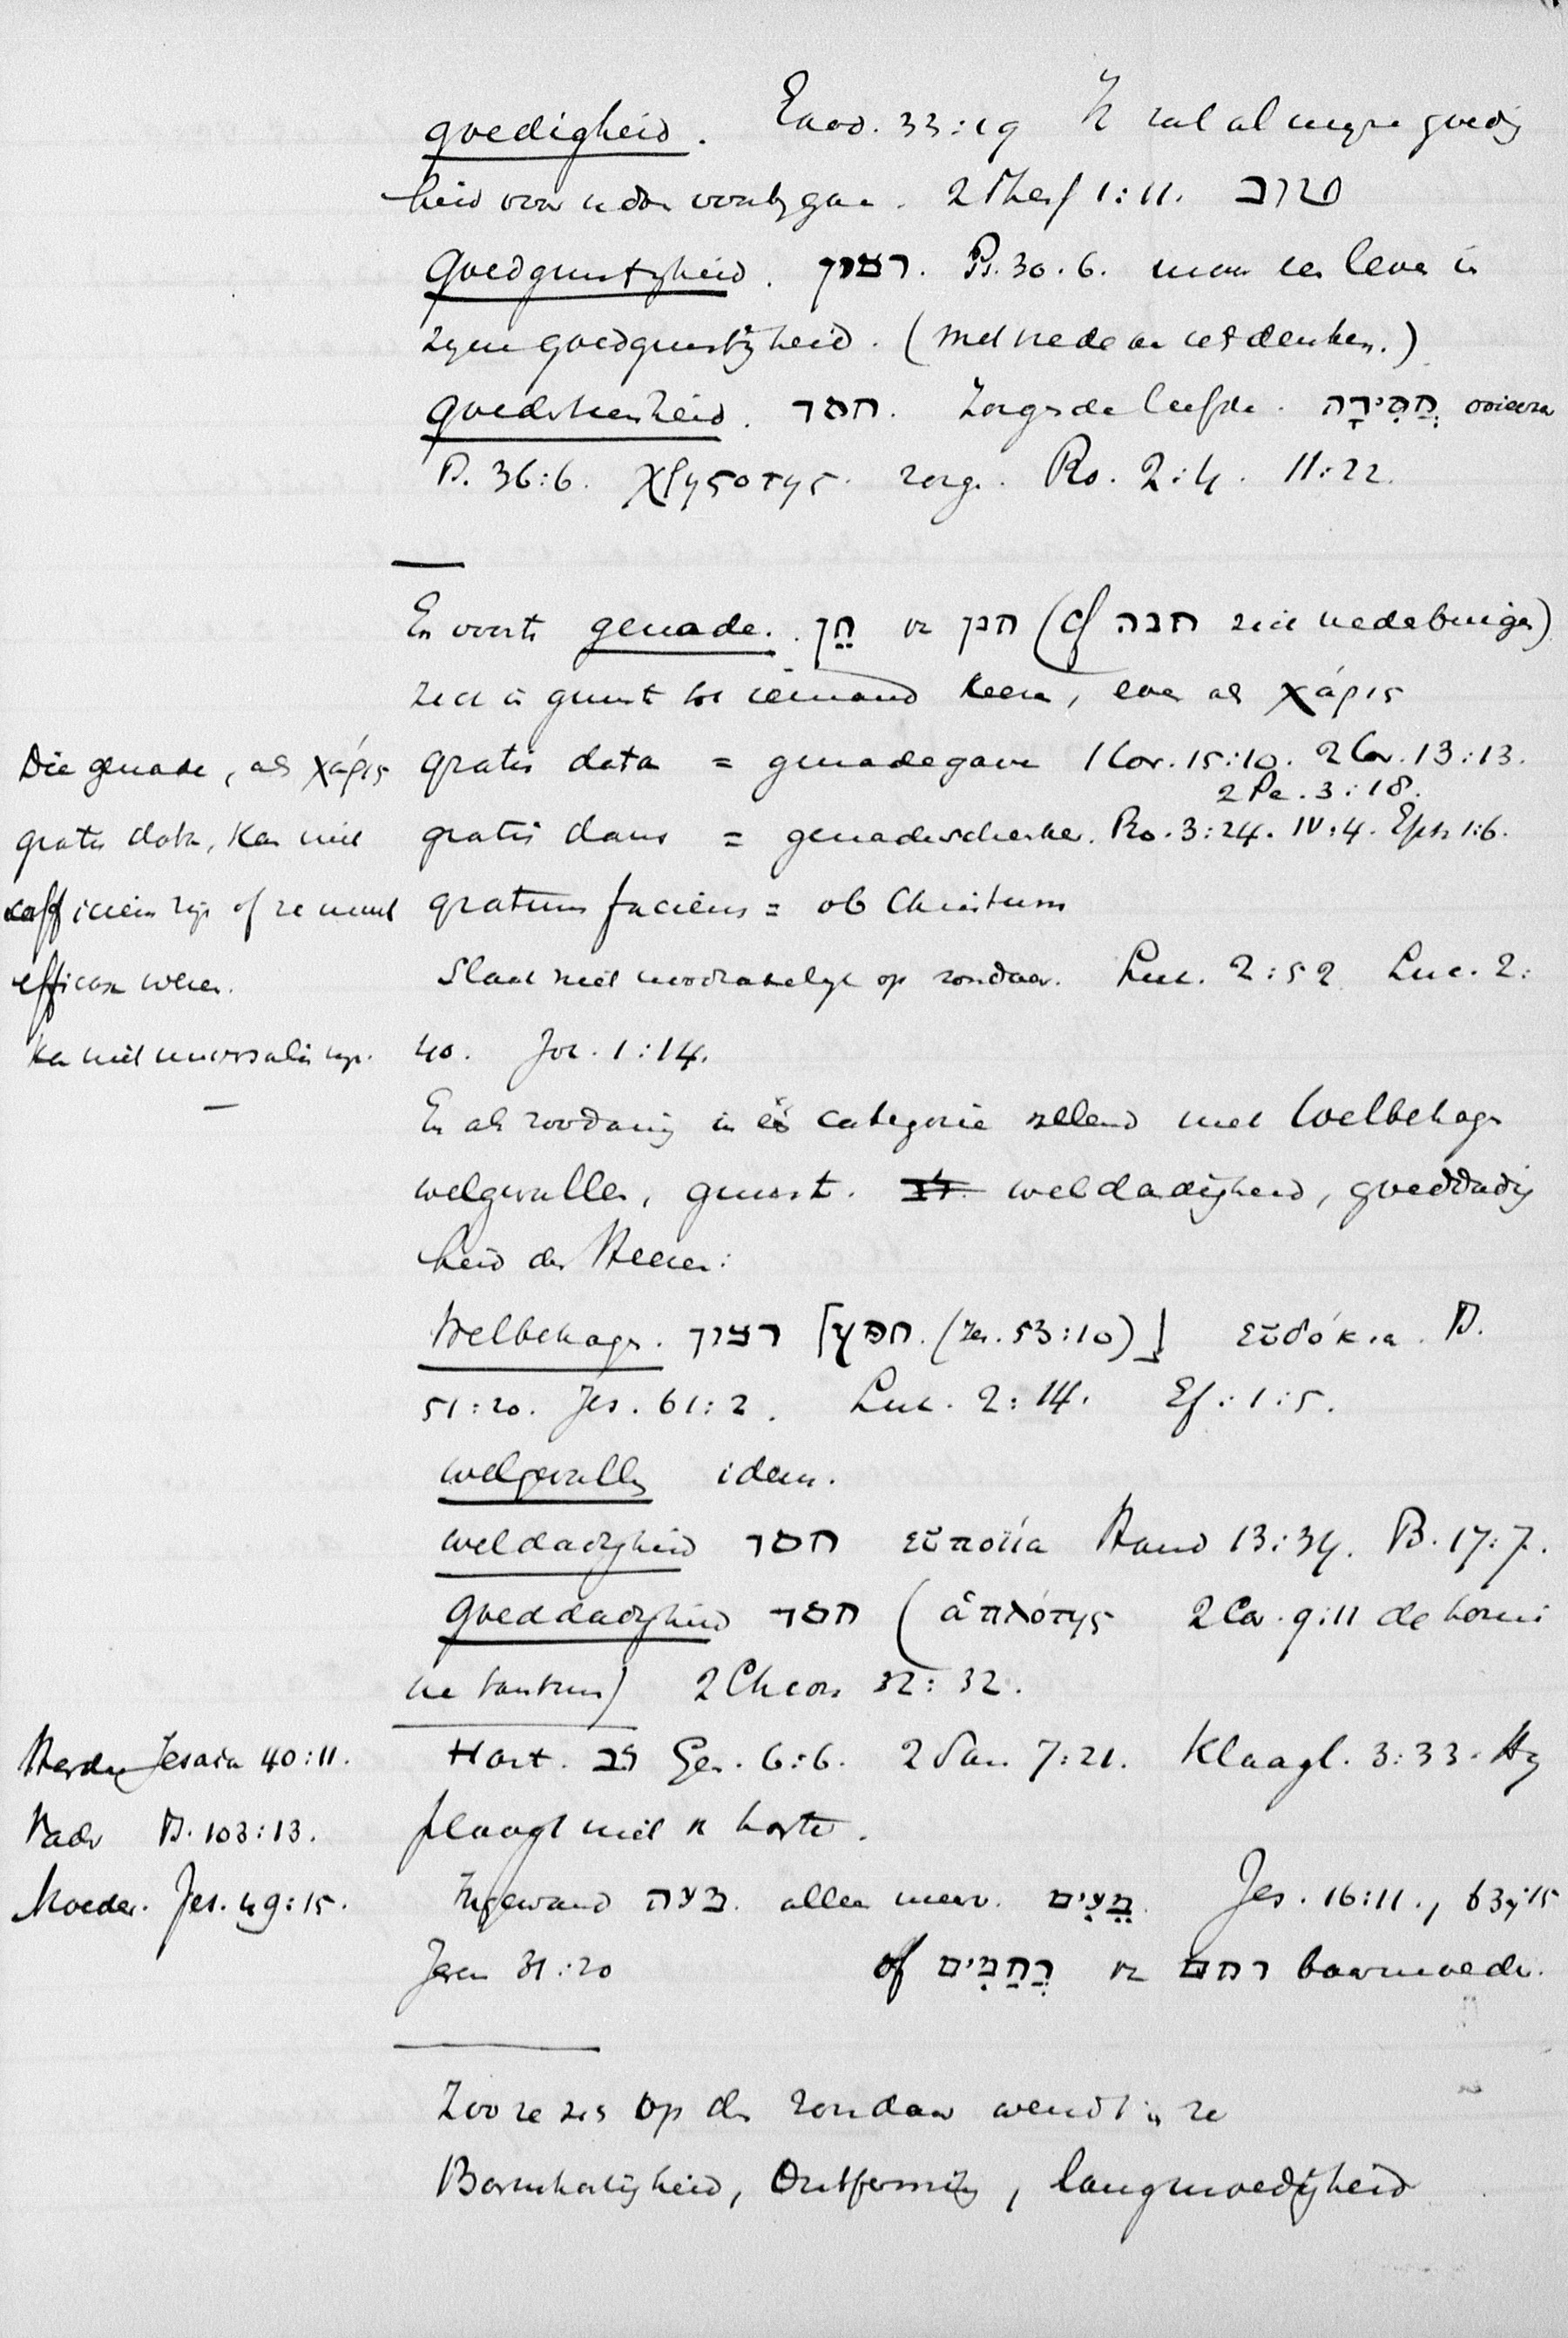 goedigheid. Exod. 33:19 Ik zal al mijne goedig
heid voor u doen voorbijgaan. 2 Thess 1:11. טוב
Goedgunstigheid. רצון. Ps. 30.6. maar een leven in
zijne goedgunstigheid. (Met rede en uitdenken.)
Goedertierenheid. חסד. Zorgende liefde. חֲסִידָה ooievaar
Ps. 36:6. χρηςοτης. zorg. Ro. 2:4. 11:22.
En voorts genade. חֵן v. חנן (cf חנה zich nederbuigen)
zich in gunst tot iemand keeren, even als χάρις
Die genade, als χάρις gratis data = genadegave 1 Cor. 15:10. 2 Cor. 13:13.
2 Pe. 3:18.
gratis data, kan niet gratis dans = genadeschenker. Ro. 3:24. IV:4. Eph 1:6.
sufficiens zijn of ze moet gratum faciens = ob Christum
efficax wezen. Slaat niet noodzakelijk op zondaar. Luc. 2:52 Luc. 2:
Kan niet universalis zijn. 40. Joh. 1:14.
En als zoodanig in één categorie vallend met Welbehagen
welgevallen, gunst. weldadigheid, goeddadig
heid des Heeren:
Welbehagen. רצון [חפץ. (Jes. 53:10)] εὐδόκια. Ps.
51:20. Jes. 61:2. Luc. 2:14. Ef: 1:5.
welgevallen idem.
weldadigheid חסד εὐποιΐα Hand 13:34. Ps. 17:7.
Goeddadigheid חסד (ἁπλότης 2 Cor. 9:11 de homi
ne tantum) 2 Chron 32:32.
Herder Jesaia 40:11. Hart. לב Gen. 6:6. 2 Sam 7:21. Klaagl. 3:33. Hij
Vader Ps. 103:13. plaagt niet v. harte.
Moeder. Jes. 49:15. Ingewand מעה. alleen meerv. מֵעִים. Jes. 16:11., 63:15
Jerem 31:20 of רַחֲמִים v. רחם baarmoeder.
Zoo ze zich op den zondaar wendt is ze
Barmhartigheid, Ontferming, langmoedigheid